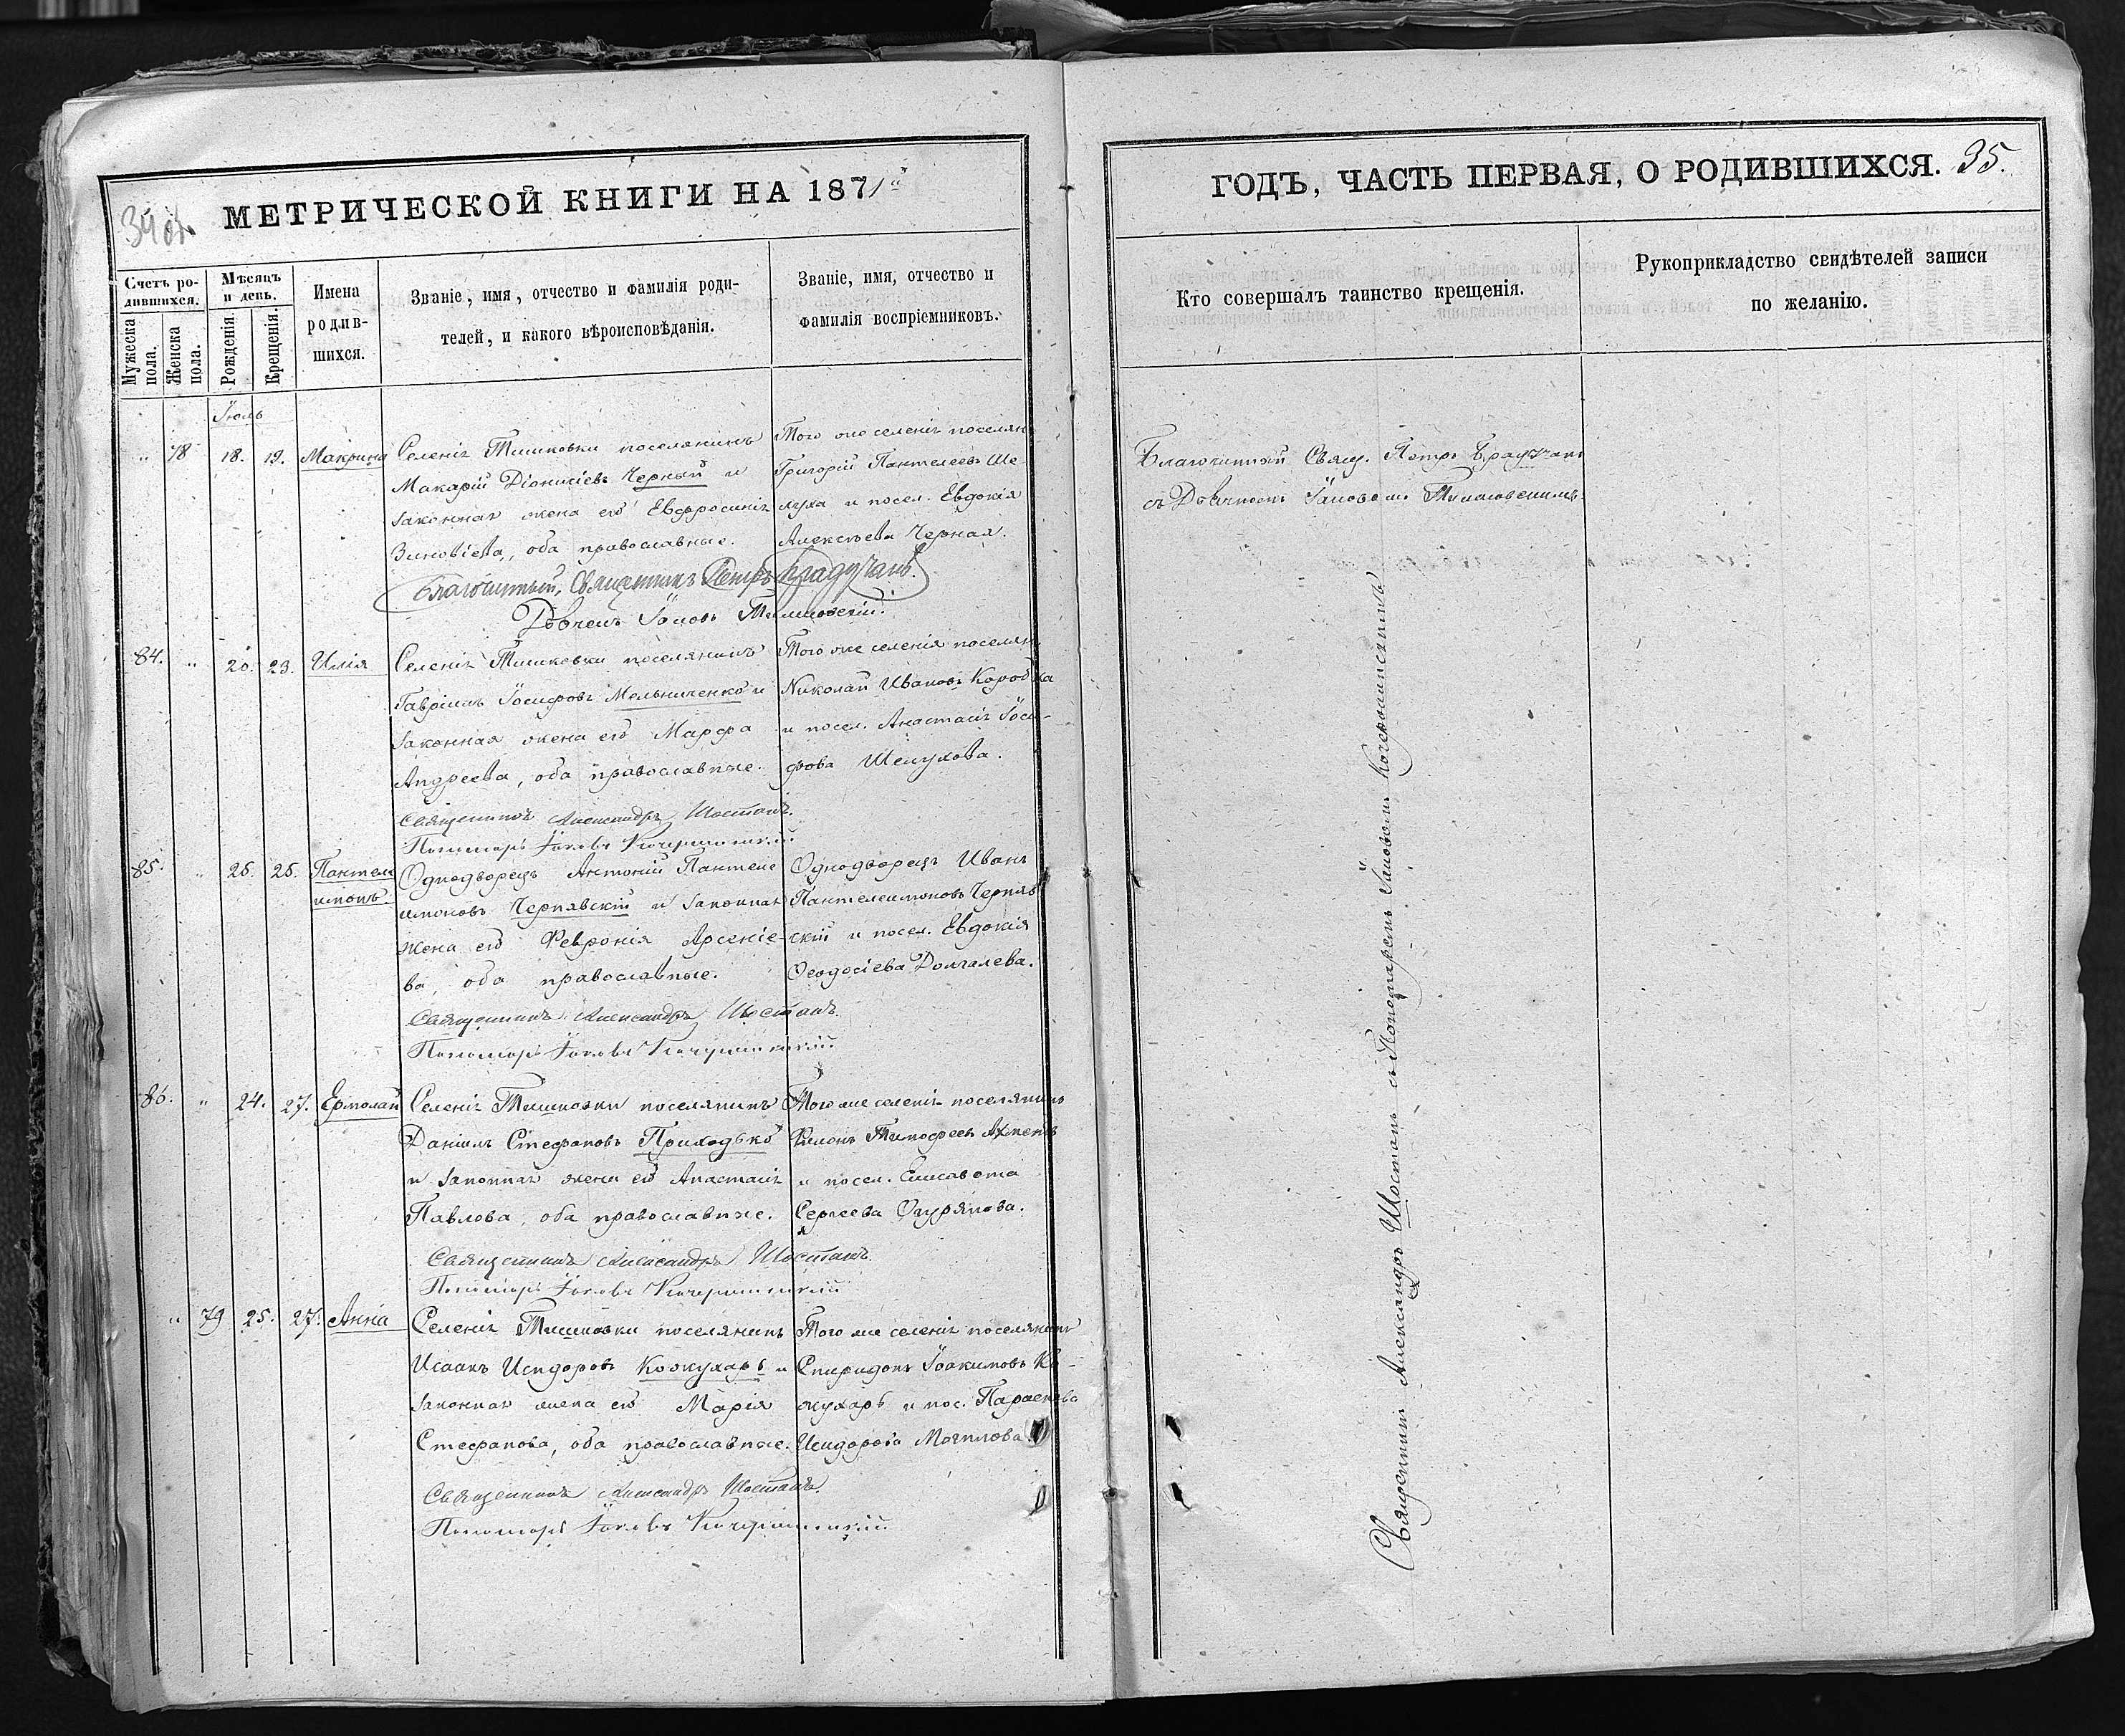 34 об.
МЕТРИЧЕСКОЙ КНИГИ НА 1871й
Счетъ ро-
дившихся.
Мужеска
пола.
Женска
пола.
Мѣсяцъ
и день.
Рожденія.
Крещенія.
Имена
родив-
шихся.
Званіе, имя, отчество и фамилія роди-
телей, и какого вѣроисповѣданія.
Званіе, имя, отчество и
фамилія воспріемниковъ.
Іюль
" 78 18. 19. Макрина
Селенія Тишковки поселянинъ
Макарій Діонисіевъ Черный и
законная жена его Евфросинія
Зиновіева, оба православные.
Того же селенія поселян.
Григорій Пантелеевъ Ше-
луха и посел. Евдокія
Алексѣева Черная.
Благочинный, Священникъ Петръ Крадучанъ.
Дьячекъ Іаковъ
84. " 20. 23. Илія
Селенія Тишковки поселянинъ
Гавріилъ Іосифовъ Мельниченко и
законная жена его Марфа
Андреева, оба православные.
Того же селенія поселян.
Николай Ивановъ Коробка
и посел. Анастасія Іоси-
фова Шелухова.
Священникъ Александръ Шостакъ.
Пономарь Іаковъ
85. " 25. 25. Пантеле
имонъ.
Однодворецъ Антоній Пантеле
имоновъ Чернявскій и законная
жена его Февронія Арсеніе-
ва, оба православные.
Однодворецъ Иванъ
Пантелеимоновъ Черняв
скій и посел. Евдокія
Ѳеодосіева Долгалева.
Священникъ Александръ Шостакъ.
Пономарь Іаковъ
86. " 24. 27. Ермолай
Селенія Тишковки поселянинъ
Даніилъ Стефановъ Приходько
и законная жена его Анастасія
Павлова, оба православные.
Того же селенія поселянинъ
Филонъ Тимофеевъ
и посел. Елисавета
Сергеева
Священникъ Александръ Шостакъ.
Пономарь Іаковъ
" 79 25. 27. Анна
Селенія Тишковки поселянинъ
Исаакъ Исидоровъ Кожухарь и
законная жена его Марія
Стефанова, оба православные.
Того же селенія поселянинъ
Спиридонъ Іоакимовъ Ко-
жухарь и пос. Параскева
Исидорова Могилова.
Священникъ Александръ Шостакъ.
Пономарь Іаковъ
ГОДЪ, ЧАСТЬ ПЕРВАЯ, О РОДИВШИХСЯ. 35.
Кто совершалъ таинство крещенія.
Рукоприкладство свидѣтелей записи
по желанію.
Благочинный Свящ. Петръ Крадучанъ
съ Дьячкомъ Іаковомъ
Священникъ Александръ Шостакъ съ Пономаремъ Іаковомъ